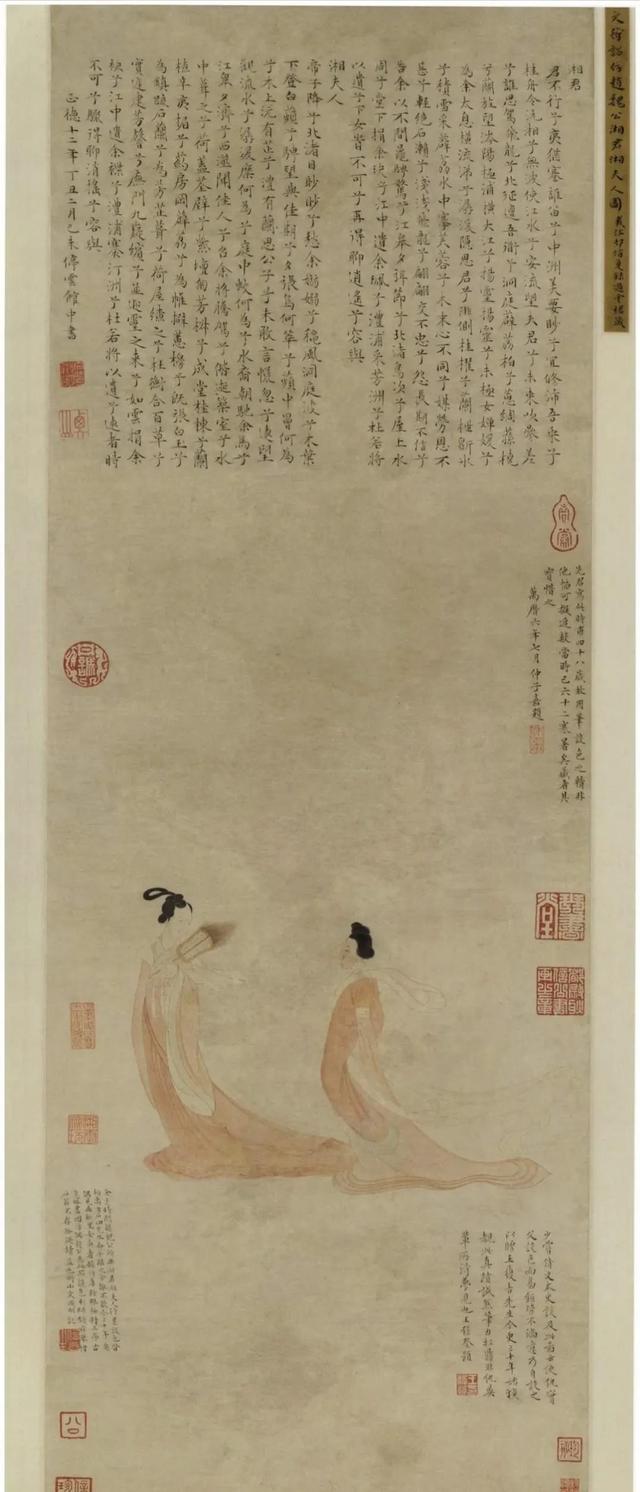 文待詔仿趙魏公湘君湘夫人圖
湘君
君不行兮夷猶蹇誰留兮中洲美要眇兮宜修沛吾乘兮
桂舟令沅湘兮無波使江水兮安流望夫君兮未來吹參差
兮誰思駕飛龍兮北征邅吾道兮洞庭薜荔柏兮蕙綢蓀橈
兮蘭旌望涔陽極浦橫大江兮揚靈揚靈兮未極女嬋媛兮
為余太息橫流涕兮潺湲隱思君兮陫側桂櫂兮蘭枻斲冰
兮積雪采薜荔水中搴芙蓉兮木末心不同兮媒勞恩不
甚兮輕絕石瀨兮淺淺飛龍兮翩翩交不忠兮怨長期不信兮
告余以不閒鼂騁騖兮江皋夕弭節兮北渚鳥次兮屋上水
周兮堂下捐余玦兮江中遺余佩兮澧浦采芳洲兮杜若將
以遺兮下女時不可兮再得聊逍遙兮容與
湘夫人
帝子降兮北渚目眇眇兮愁余嫋嫋兮穐風洞庭波兮木葉
下登白薠兮騁望與佳期兮夕張鳥何萃兮蘋中罾何為
兮木上沅有芷兮澧有蘭思公子兮未敢言慌忽兮遠望
觀流水兮潺湲麋何為兮庭中蛟何為兮水裔朝馳余馬兮
江皋夕濟兮西澨聞佳人兮召余將騰駕兮偕逝築室兮水
中葺之兮荷蓋荃壁兮紫壇匊芳椒兮成堂桂棟兮蘭
橑辛夷楣兮葯房罔薜荔兮為帷擗蕙櫋兮既張白玉兮
為鎮疏石蘭兮為芳芷葺兮荷屋繚之兮杜衡合百草兮
實庭建芳馨兮廡門九嶷繽兮並迎靈之來兮如雲捐余
袂兮江中遺余褋兮澧浦搴汀洲兮杜若將以遺兮遠者時
不可兮驟得聊逍遙兮容與
正德十二年丁丑二月己未停雲館中書
先君寫此時甫四十八歲故用筆設色之精非
他幅可擬追數當時已六十二寒暑矣藏者其
寶惜之
萬曆六年七月仲子嘉題
少嘗侍文太史談及此圖云使仇實
父設色兩易紙皆不滿意乃自設之
以贈王履吉先生今更三十年始獲
觀此真蹟誠然筆力扛鼎非仇英
輩所得夢見也王穉登題